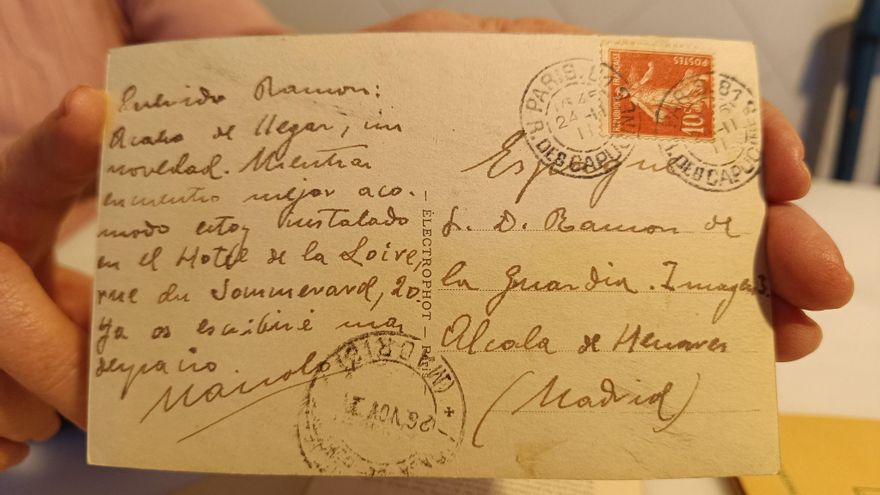 Querido Ramon:
Acabo de llegar, sin
novedad. Mientras
encuentro mejor aco-
modo estoy instalado
en el Hotel de la Loire,
rue du Sommerard, 20.
Ya os escribiré mas
despacio
Manolo
ÉLECTROPHOT — PARIS
PARIS
24 - 11
R. DES CAPUCINES
REPUBLIQUE FRANÇAISE
POSTES
10c
Espagne
S. D. Ramon de
la Guardia. Imagen 3.
Alcala de Henares
(Madrid)
(MADRID)
26 NOV